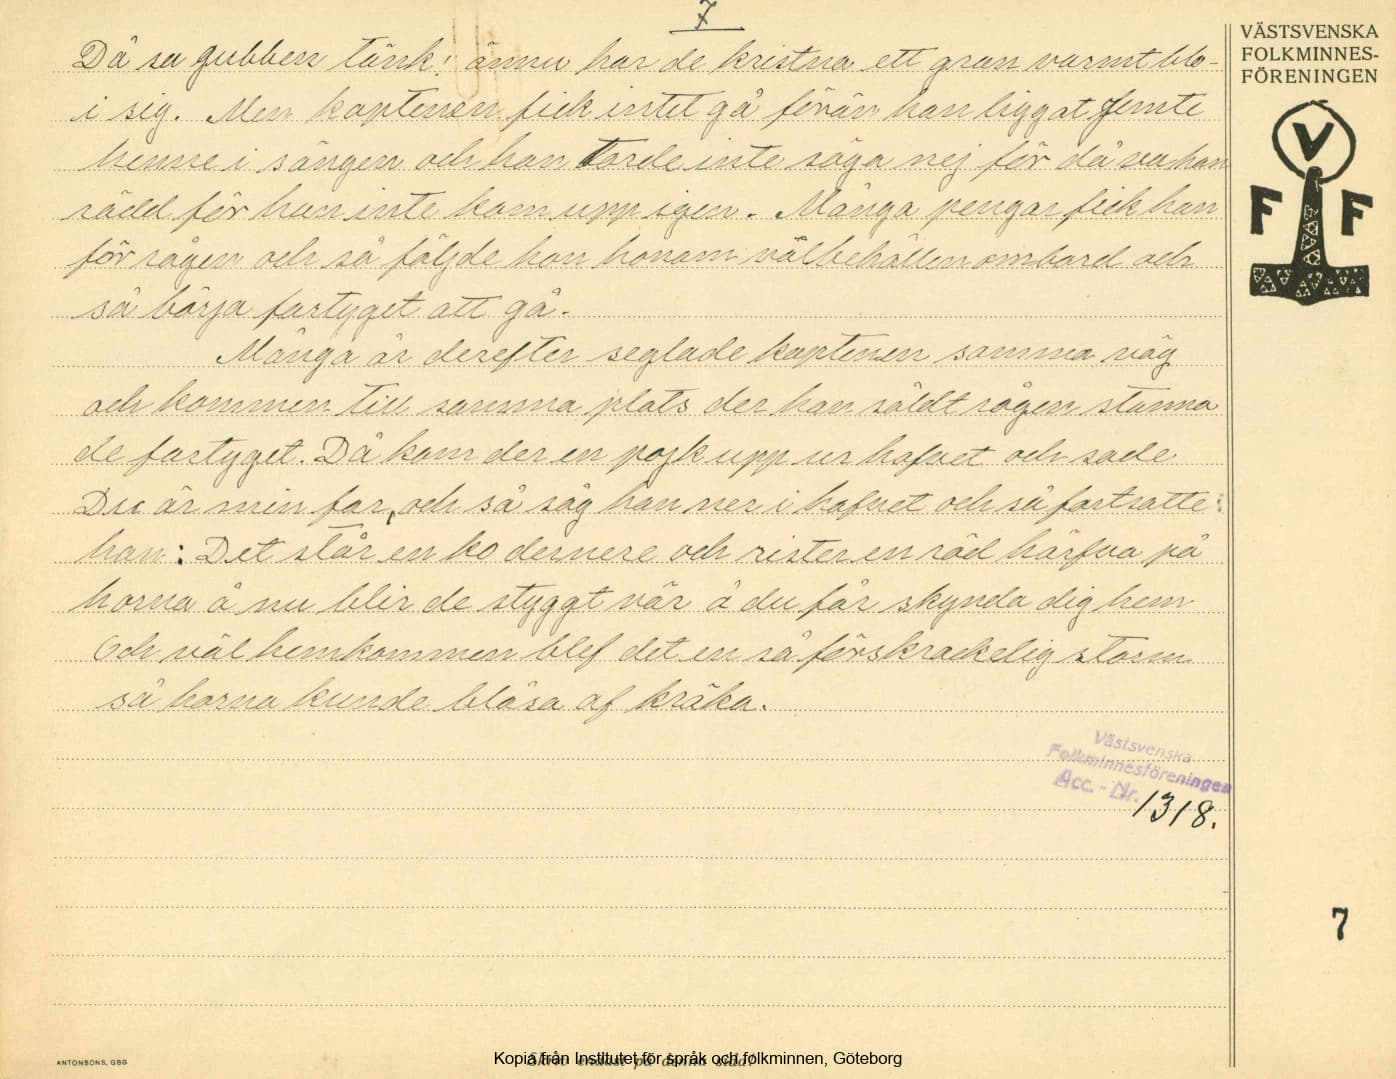 7
VÄSTSVENSKA
FOLKMINNES-
FÖRENINGEN
V
F F
Då sa gubben tänk! ännu har de kristna ett gran varmt blo-
i sig. Men kaptenen fick intet gå förän han liggat jemte
henne i sängen och han torde inte säga nej för då va han
rädd för han inte kom upp igen. Många pengar fick han
för rågen och så följde hon honom välbehållen ombord och
så börja fartyget att gå.
Många år derefter seglade kaptenen samma väg
och kommen till samma plats der han såldt rågen stanna
de fartyget. Då kom der en pojk upp ur hafvet och sade
Du är min far, och så såg han ner i hafvet och så fortsatte:
han: Det står en ko dernere och rister en röd härfva på
horna å nu blir de styggt vär å du får skynda dig hem
Och väl hemkommen blef det en så förskräckelig storm
så horna kunde blåsa af kräka.
Västsvenska
Folkminnesföreningen
Acc. - Nr. 1318.
7
ANTONSONS, GBG
Skriv endast på denna sida!
Kopia från Institutet för språk och folkminnen, Göteborg